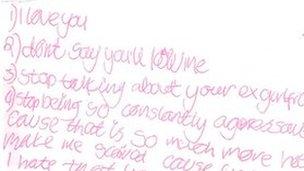 1) I love you
2) dont say you'll me
3) stop talking about your ex girlfri
4) stop being so constantly
cause that is so much more
make me scared cause
I hate that